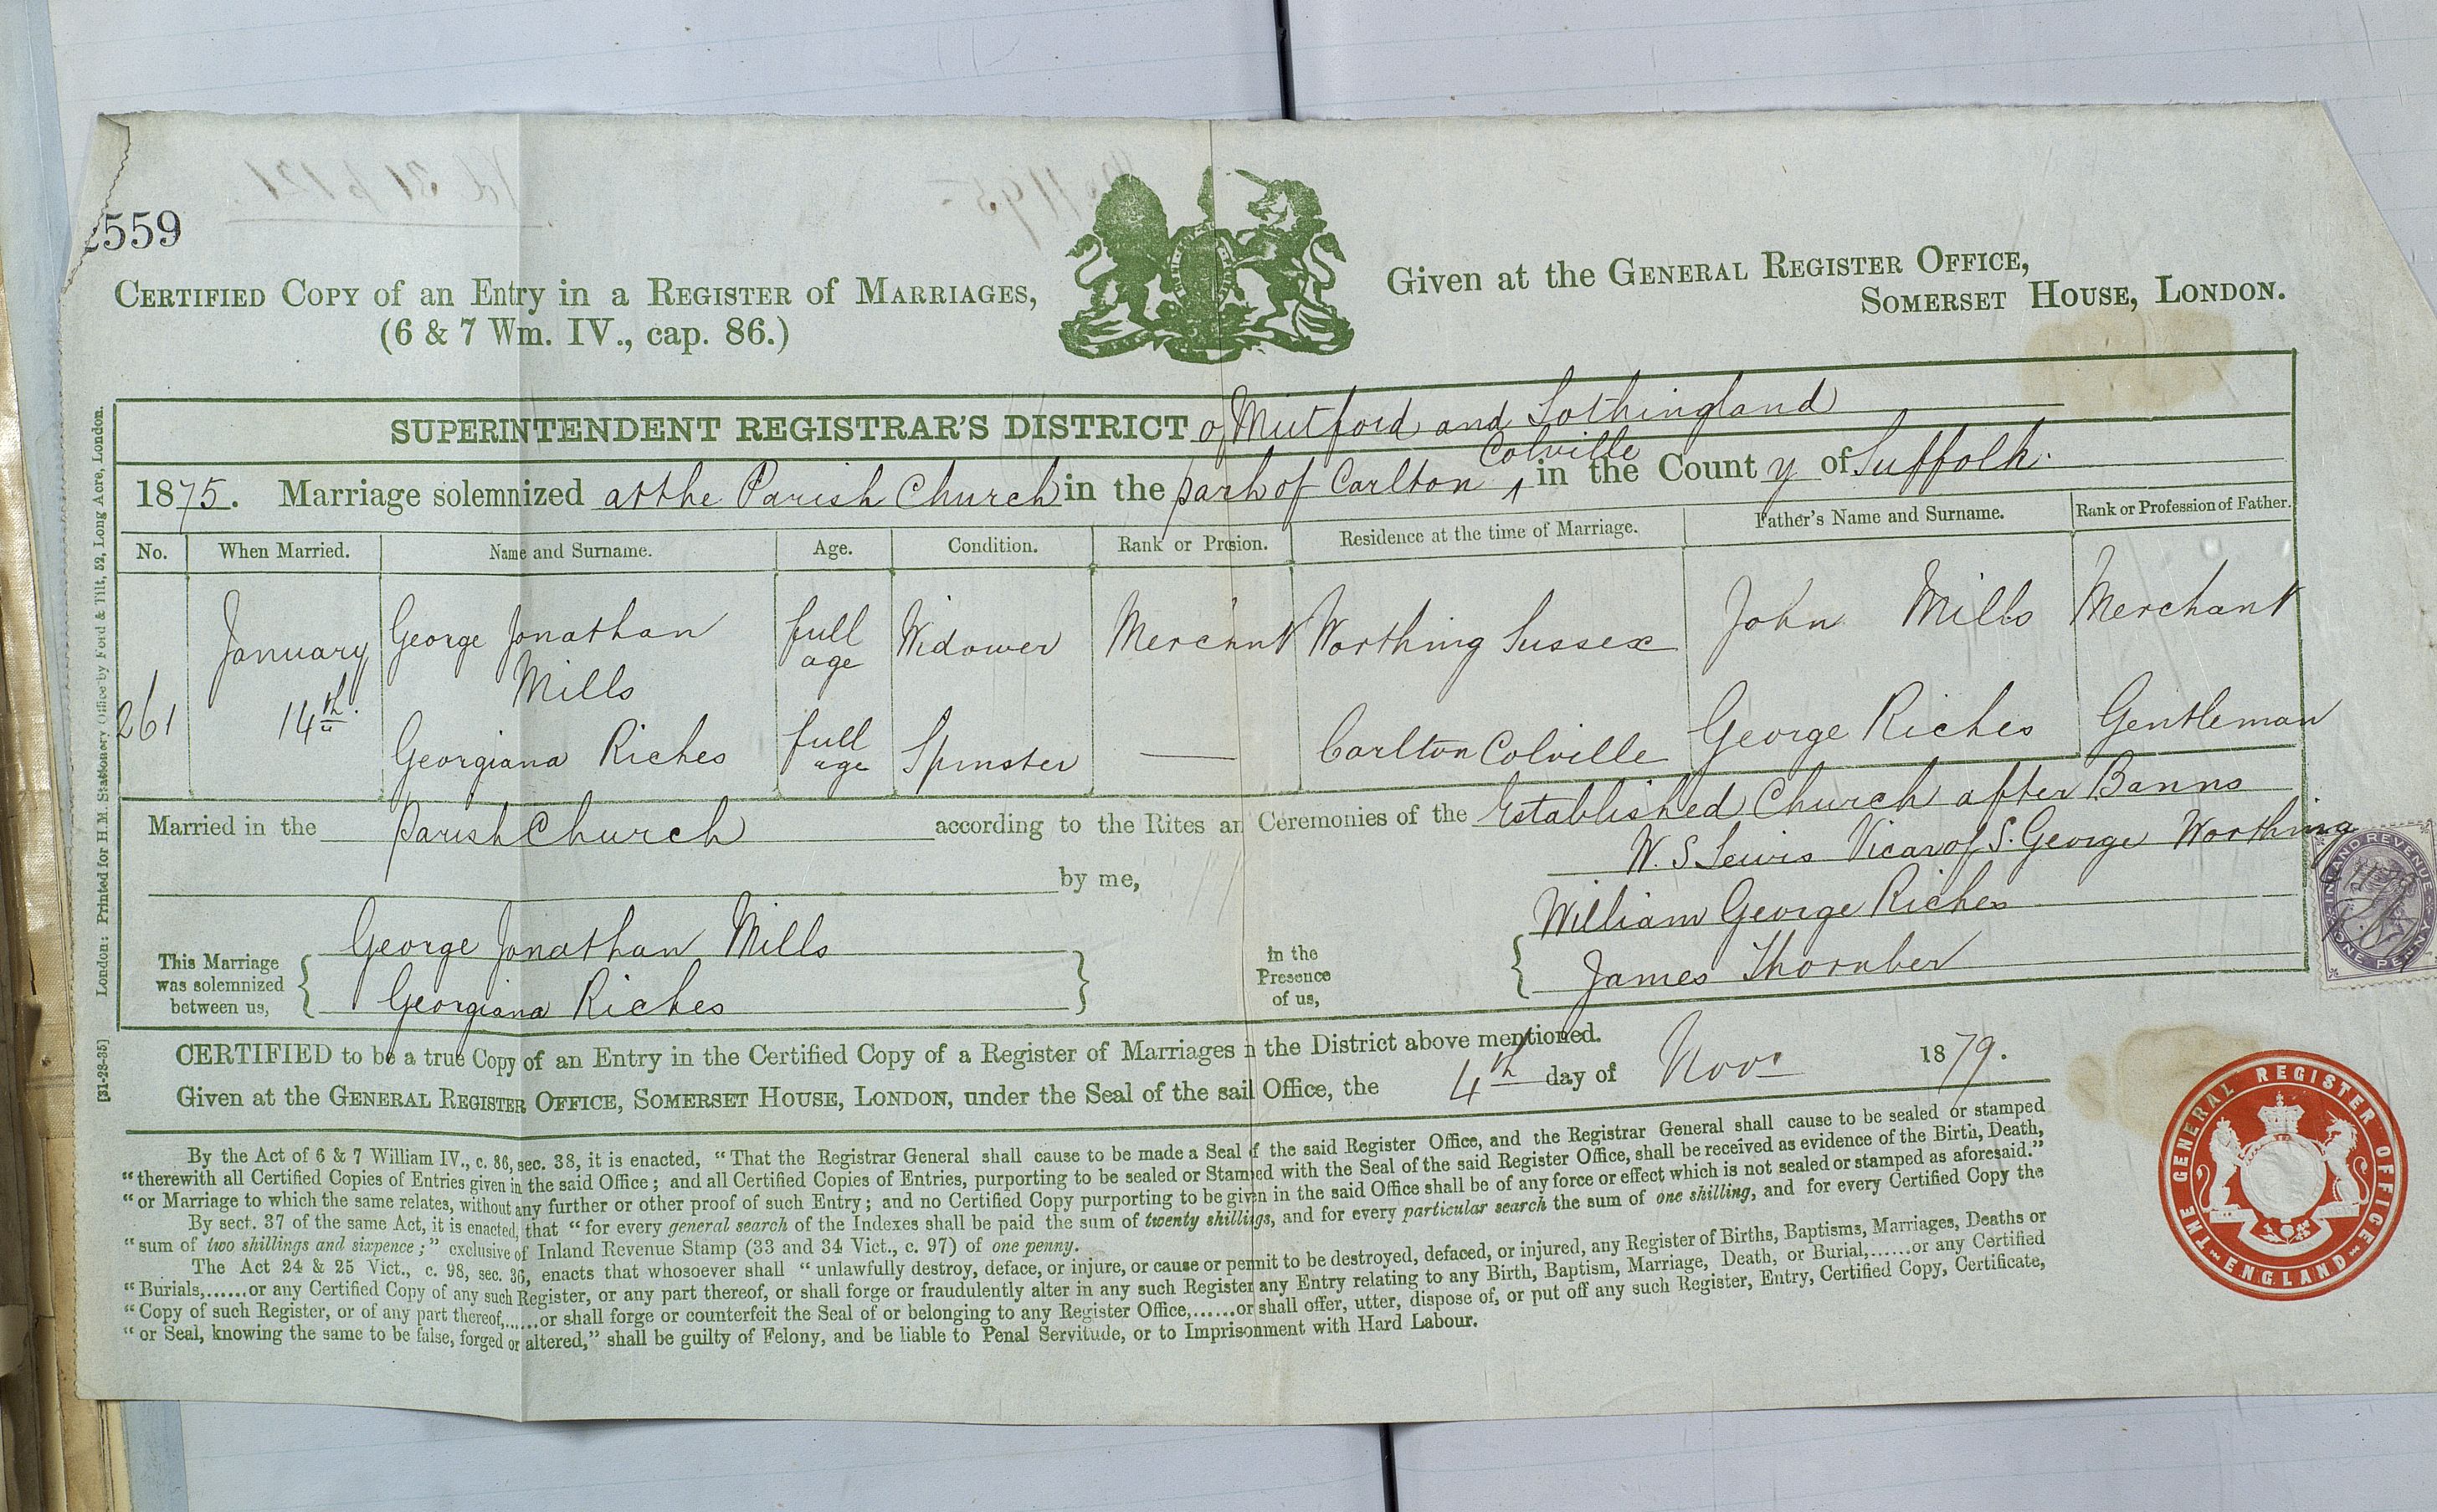 2559
CERTIFIED COPY of an Entry in a REGISTER of MARRIAGES,
(6 & 7 Wm. IV., cap. 86.)
Given at the GENERAL REGISTER OFFICE,
SOMERSET HOUSE, LONDON.
SUPERINTENDENT REGISTRAR'S DISTRICT of Mutford and Lothingland
1875. Marriage solemnized at the Parish Church in the parh of Carlton Colville in the County of Suffolk.
No. When Married. Name and Surname. Age. Condition. Rank or Prosion. Residence at the time of Marriage. Father's Name and Surname. Rank or Profession of Father.
261 January 14th George Jonathan Mills full age Widower Merchnt Worthing Sussex John Mills Merchant
Georgiana Riches full age Spinster — Carlton Colville George Riches Gentleman
Married in the Parish Church according to the Rites an Ceremonies of the Established Church after Banns
by me, W. S. Lewis Vicar of S. George Worthing
This Marriage was solemnized between us, { George Jonathan Mills
Georgiana Riches }
in the Presence of us, { William George Riches
James Thornber
CERTIFIED to be a true Copy of an Entry in the Certified Copy of a Register of Marriages n the District above mentioned.
Given at the GENERAL REGISTER OFFICE, SOMERSET HOUSE, LONDON, under the Seal of the sail Office, the 4th day of Novr 1879.
By the Act of 6 & 7 William IV., c. 86, sec. 38, it is enacted, "That the Registrar General shall cause to be made a Seal f the said Register Office, and the Registrar General shall cause to be sealed or stamped
"therewith all Certified Copies of Entries given in the said Office; and all Certified Copies of Entries, purporting to be sealed or Stamped with the Seal of the said Register Office, shall be received as evidence of the Birth, Death,
"or Marriage to which the same relates, without any further or other proof of such Entry; and no Certified Copy purporting to be given in the said Office shall be of any force or effect which is not sealed or stamped as aforesaid."
By sect. 37 of the same Act, it is enacted, that "for every general search of the Indexes shall be paid the sum of twenty shillings, and for every particular search the sum of one shilling, and for every Certified Copy the
"sum of two shillings and sixpence;" exclusive of Inland Revenue Stamp (33 and 34 Vict., c. 97) of one penny.
The Act 24 & 25 Vict., c. 98, sec. 36, enacts that whosoever shall "unlawfully destroy, deface, or injure, or cause or permit to be destroyed, defaced, or injured, any Register of Births, Baptisms, Marriages, Deaths or
"Burials,......or any Certified Copy of any such Register, or any part thereof, or shall forge or fraudulently alter in any such Register any Entry relating to any Birth, Baptism, Marriage, Death, or Burial,......or any Certified
"Copy of such Register, or of any part thereof,......or shall forge or counterfeit the Seal of or belonging to any Register Office,......or shall offer, utter, dispose of, or put off any such Register, Entry, Certified Copy, Certificate,
"or Seal, knowing the same to be false, forged or altered," shall be guilty of Felony, and be liable to Penal Servitude, or to Imprisonment with Hard Labour.
[31-28-35] London: Printed for H.M. Stationery Office by Ford & Tilt, 52, Long Acre, London.
INLAND REVENUE
ONE PENNY
THE GENERAL REGISTER OFFICE
ENGLAND